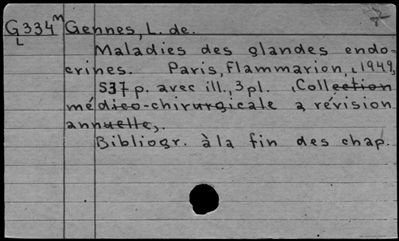 7
G334ᵐ Gennes, L. de.
L
Maladies des glandes endo-
crines. Paris, Flammarion, 1949,
537 p. avec ill., 3 pl. (Collection
médico-chirurgicale à révision
annuelle).
Bibliogr. à la fin des chap.